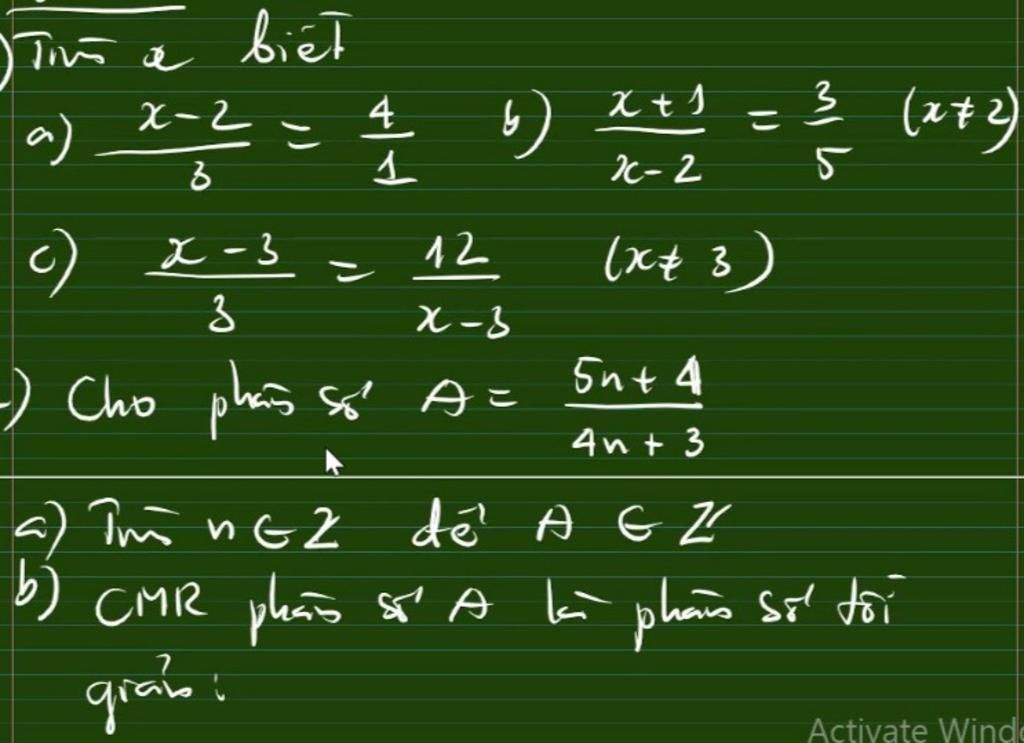 ) Tìm x biết
a) \frac{x-2}{3} = \frac{4}{1} b) \frac{x+1}{x-2} = \frac{3}{5} (x ≠ 2)
c) \frac{x-3}{3} = \frac{12}{x-3} (x ≠ 3)
) Cho phân số A = \frac{5n+4}{4n+3}
a) Tìm n ∈ Z để A ∈ Z
b) CMR phân số A là phân số tối
giản:
Activate Wind